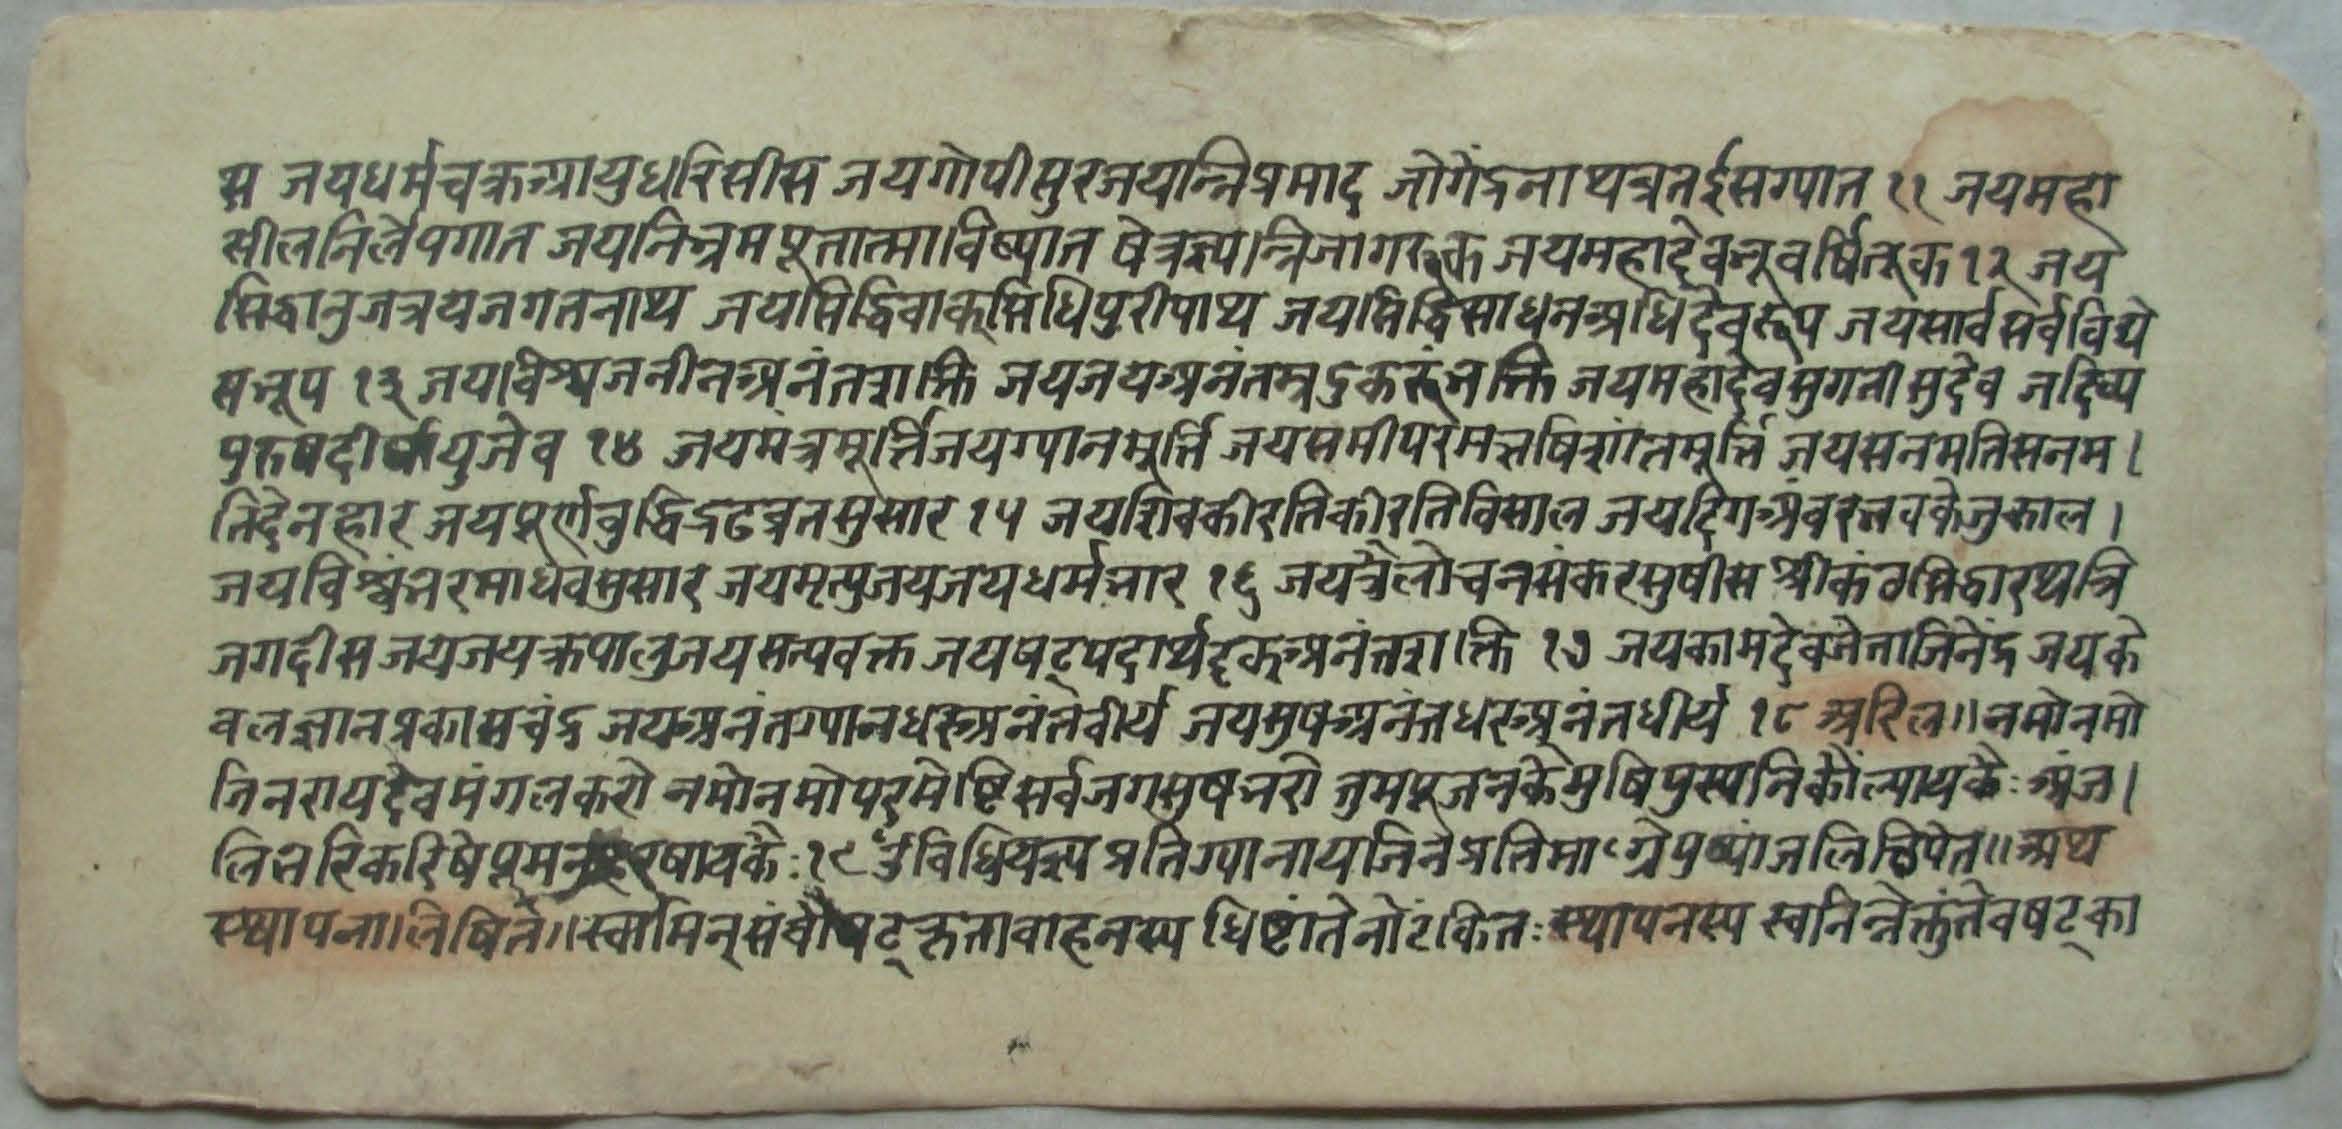 स जयधर्मचक्रआयुधरिसीस जयगोपीसुरजयन्निप्रमाद जोगेंद्रनाथव्रतईसग्यान ११ जयमहा
सीलनिर्लेपगात जयनिभ्रमपूतात्माविष्यात षेत्रज्ञपन्निजागरूक जयमहादेवभूवर्षिभूक १२ जय
सिद्धानुजत्रयजगतनाथ जयसिद्धिवाक्सिधिपुरीपाथ जयसिद्धिसाधनअधिदेवरूप जयसार्वसर्वविद्ये
सभूप १३ जयविश्वजनीनअनंतशक्ति जयजयअनंतम्रडकरूंभक्ति जयमहादेवसुगतीसुदेव जदिव्य
पुरुषदीर्घायुजेव १४ जयमंत्रमूर्त्तिजयग्यानमूर्त्ति जयसमीपरमरुषिशांतमूर्त्ति जयसनमतिसनम।
तिदेनहार जयपूर्णवुद्धिद्रढव्रतसुसार १५ जयशिवकीरतिकीरतिविसाल जयदिगअंवरभवकेजुकाल।
जयविश्वंभरमाधवसुसार जयमृत्युजयजयधर्मभार १६ जयत्रैलोचनसंकरसुषीस श्रीकंठसिद्धारथत्रि
जगदीस जयजयक्रपालुजयसत्यवक्त जयषट्पदार्थदृक्अनंतशक्ति १७ जयकामदेवजेताजिनेंद्र जयके
वलज्ञानप्रकासचंद्र जयअनंतग्यानधरुअनंतवीर्य जयसुषअनंतधरुअनंतधीर्य १८ अरिल॥ नमोनमो
जिनरायदेवमंगलकरो नमोनमोपरमेष्टिसर्वजगसुषभरो तुमपूजनकेसुषिपुस्पनिकौंल्यायकैः अंज।
लिभरिकरिषेपूमनहरषायकैः १९ उँविधियज्ञप्रतिग्यानायजिनप्रतिमाऽग्रेपुष्पांजलिंछिपेत॥ अथ
स्थापनालिषितें॥ स्वामिन्संवौषट्क्रतावाहनस्य धिष्टांतेनोटंकितः स्थापनस्य स्वनिन्नेक्तुंतेवषट्का